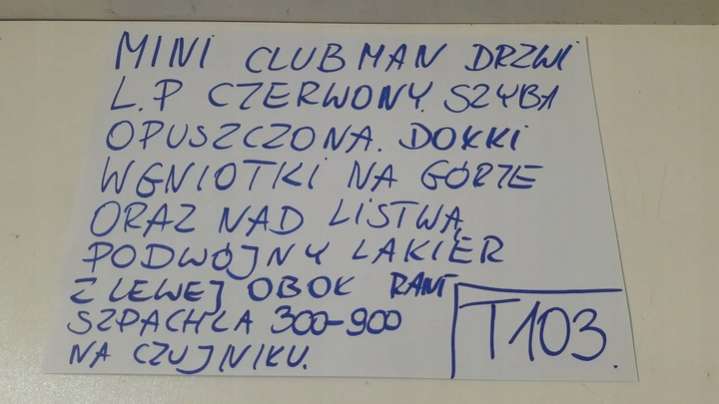 MINI CLUBMAN DRZWI
L.P CZERWONY. SZYBA
OPUSZCZONA. DOKKI
WGNIOTKI NA GÓRZE
ORAZ NAD LISTWĄ
PODWÓJNY LAKIER
Z LEWEJ OBOK RANT
SZPACHLA 300-900
NA CZUJNIKU.
T103.